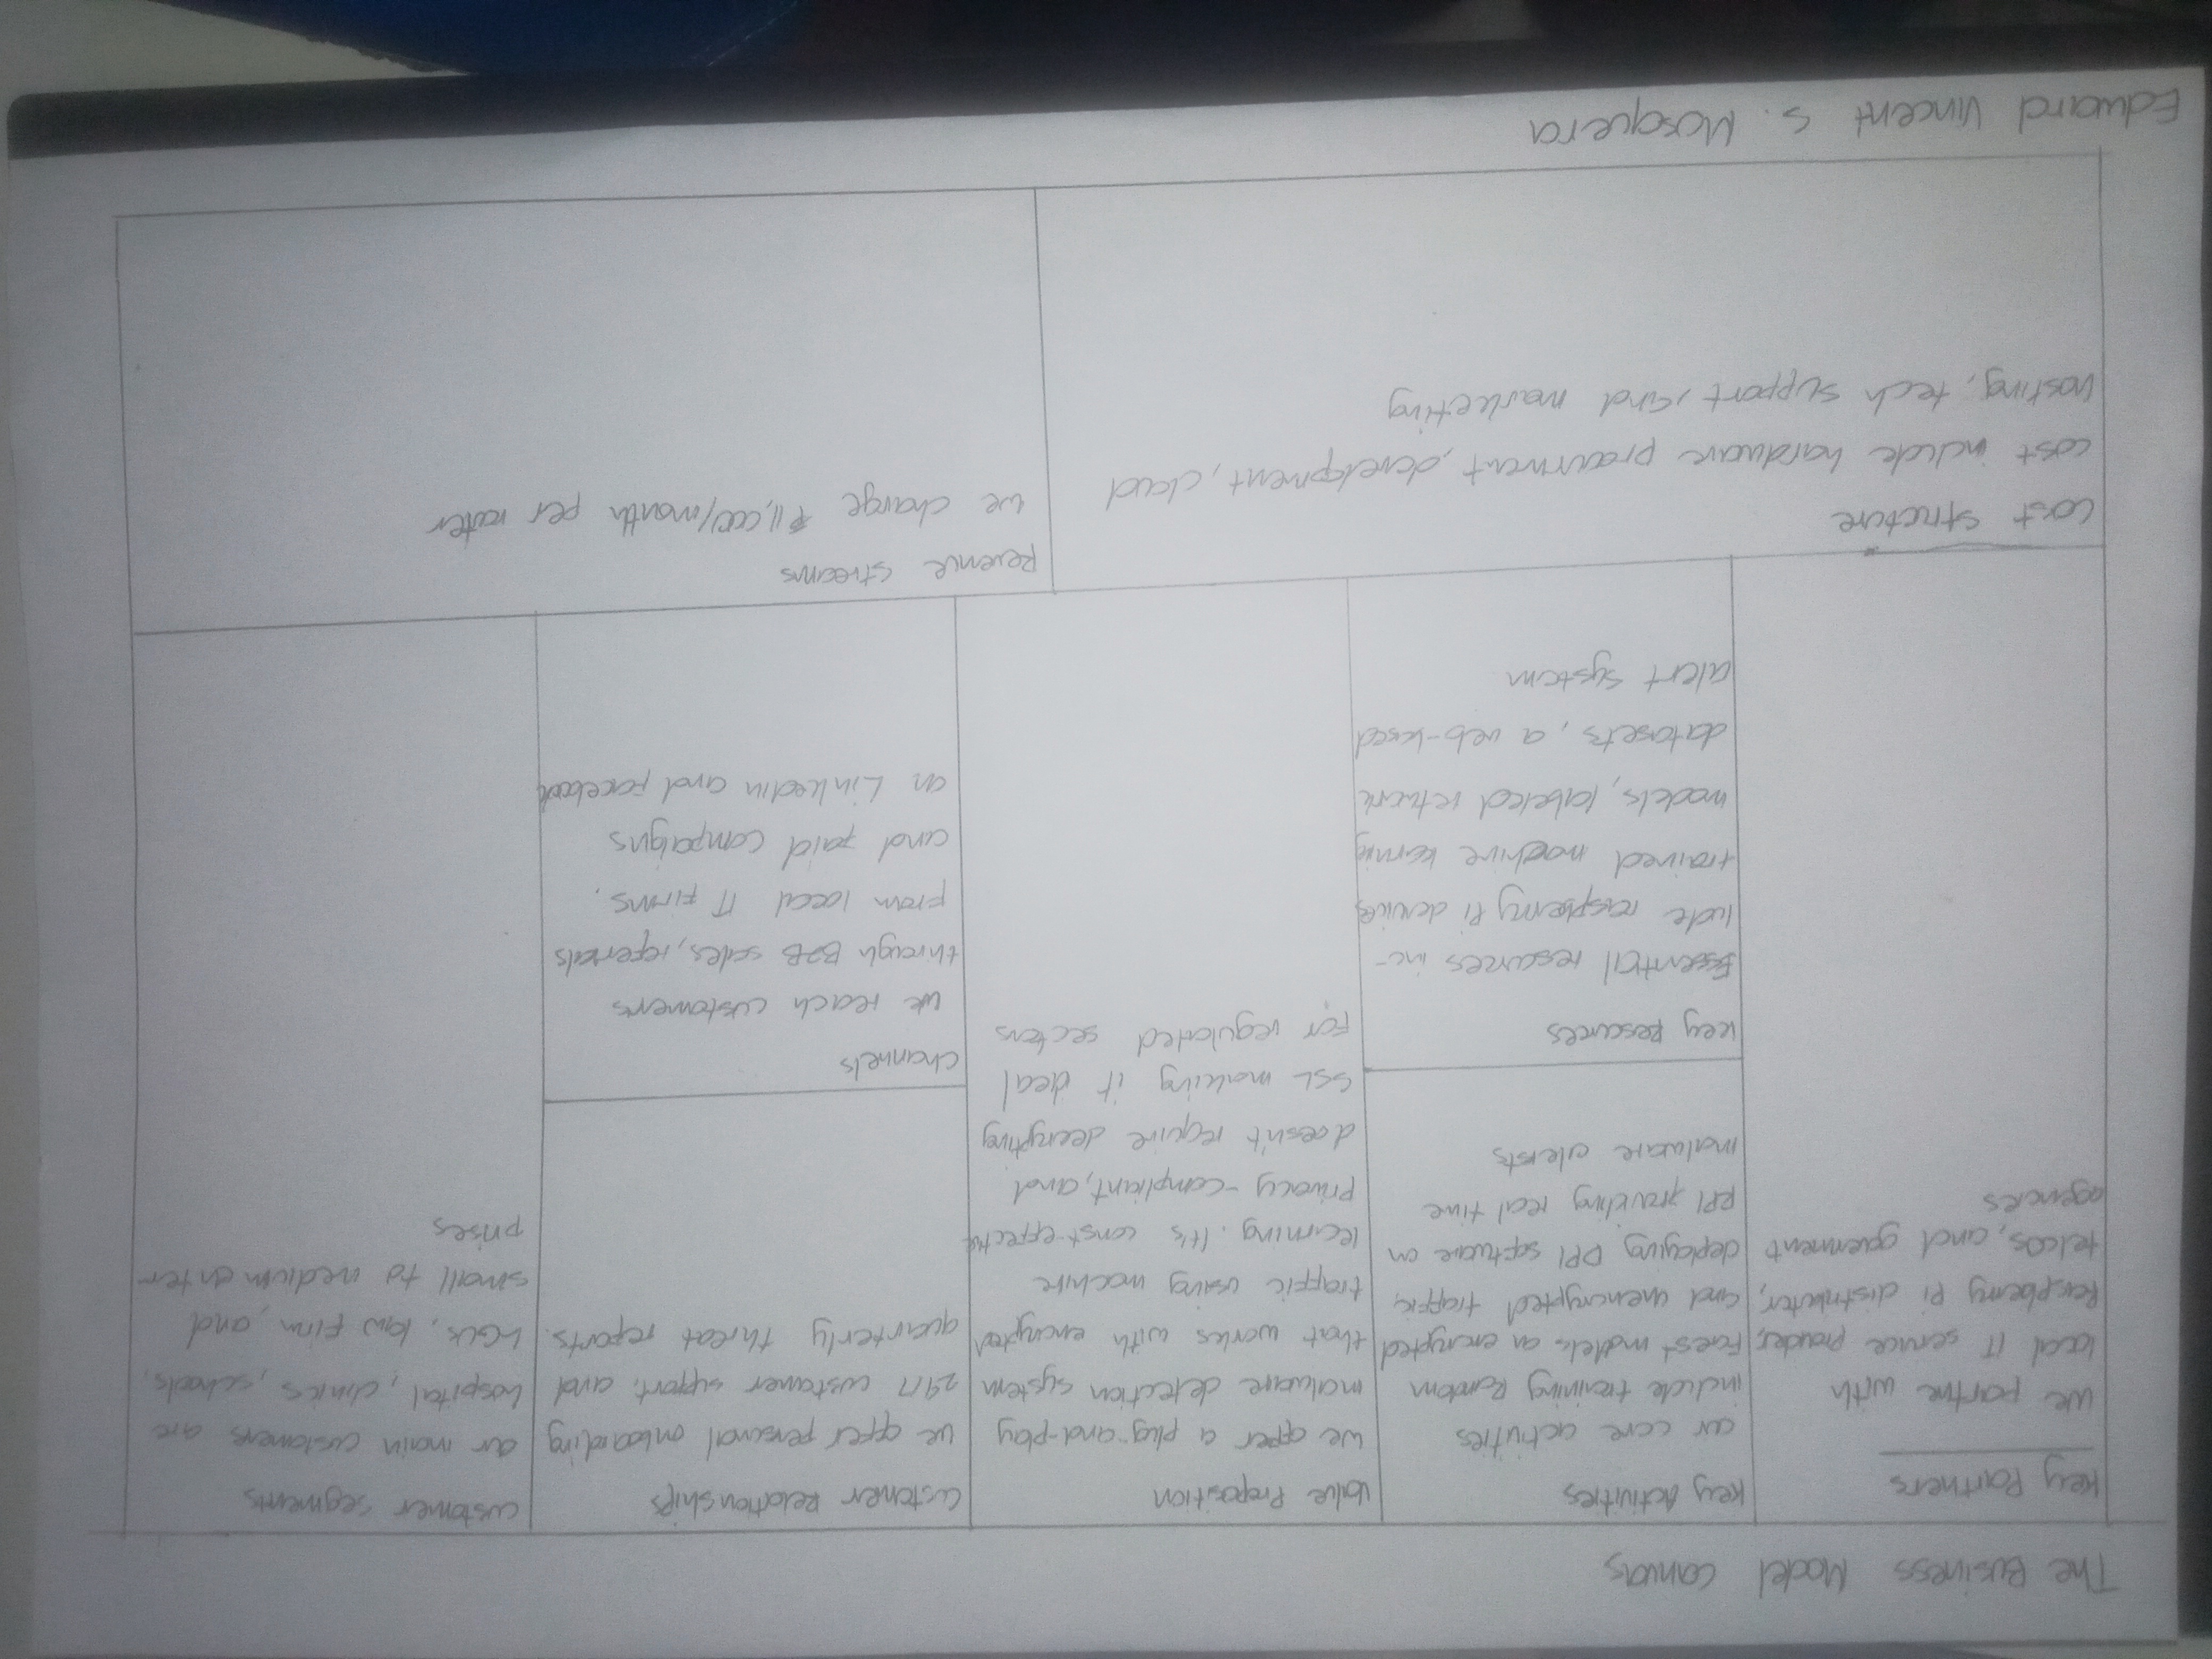 The Business Model Canvas
Key Partners
We partne with
local IT service Provider,
Raspberry Pi distributer,
telcos, and goverment
agencies
Key Activities
our core activities
include training Random
Forest models on encrypted
and unencrypted traffic,
deploying DPI software on
RPI providing real time
malware alerts
Key Resources
Essential resources inc-
lude raspberry Pi devices
trained machine learning
models, labeled network
datasets, a web-based
alert system
Value Proposition
we offer a plug-and-play
malware detection system
that works with encrypted
traffic using machine
learning. It's const-effective
privacy-compliant, and
doesn't require decrypting
SSL making it deal
for regulated sectors
Customer Relationships
we offer personal onboarding
24/7 customer support, and
quarterly threat reports.
Channels
we reach customers
through B2B sales, referrals
from local IT firms,
and paid campaigns
on Linkedin and facebook
customer segments
our main customers are
hospital, clinics, schools,
LGUs, law firm, and
small to medium enter-
prises
Cost structure
cost include hardware procurment, development, cloud
hosting, tech support, and marketing
Revenue streams
we charge ₱11,000/month per router
Edward Vincent S. Mosquera